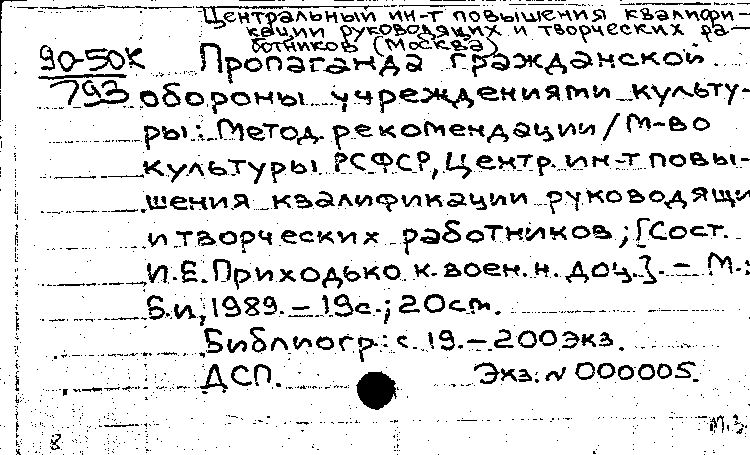 Центральный ин-т повышения квалифи-
кации руководящих и творческих ра-
ботников (Москва)
90-50К
793
Пропаганда гражданской
обороны учреждениями культу-
ры: Метод. рекомендации / М-во
культуры РСФСР, Центр. ин-т повы-
шения квалификации руководящи
и творческих работников; [Сост.
И.Е. Приходько к. воен. н. доц.]. - М.:
Б.и, 1989. - 19с.; 20см.
Библиогр: с. 19. - 200 экз.
ДСП. Экз. N 000005.
М.З.
8